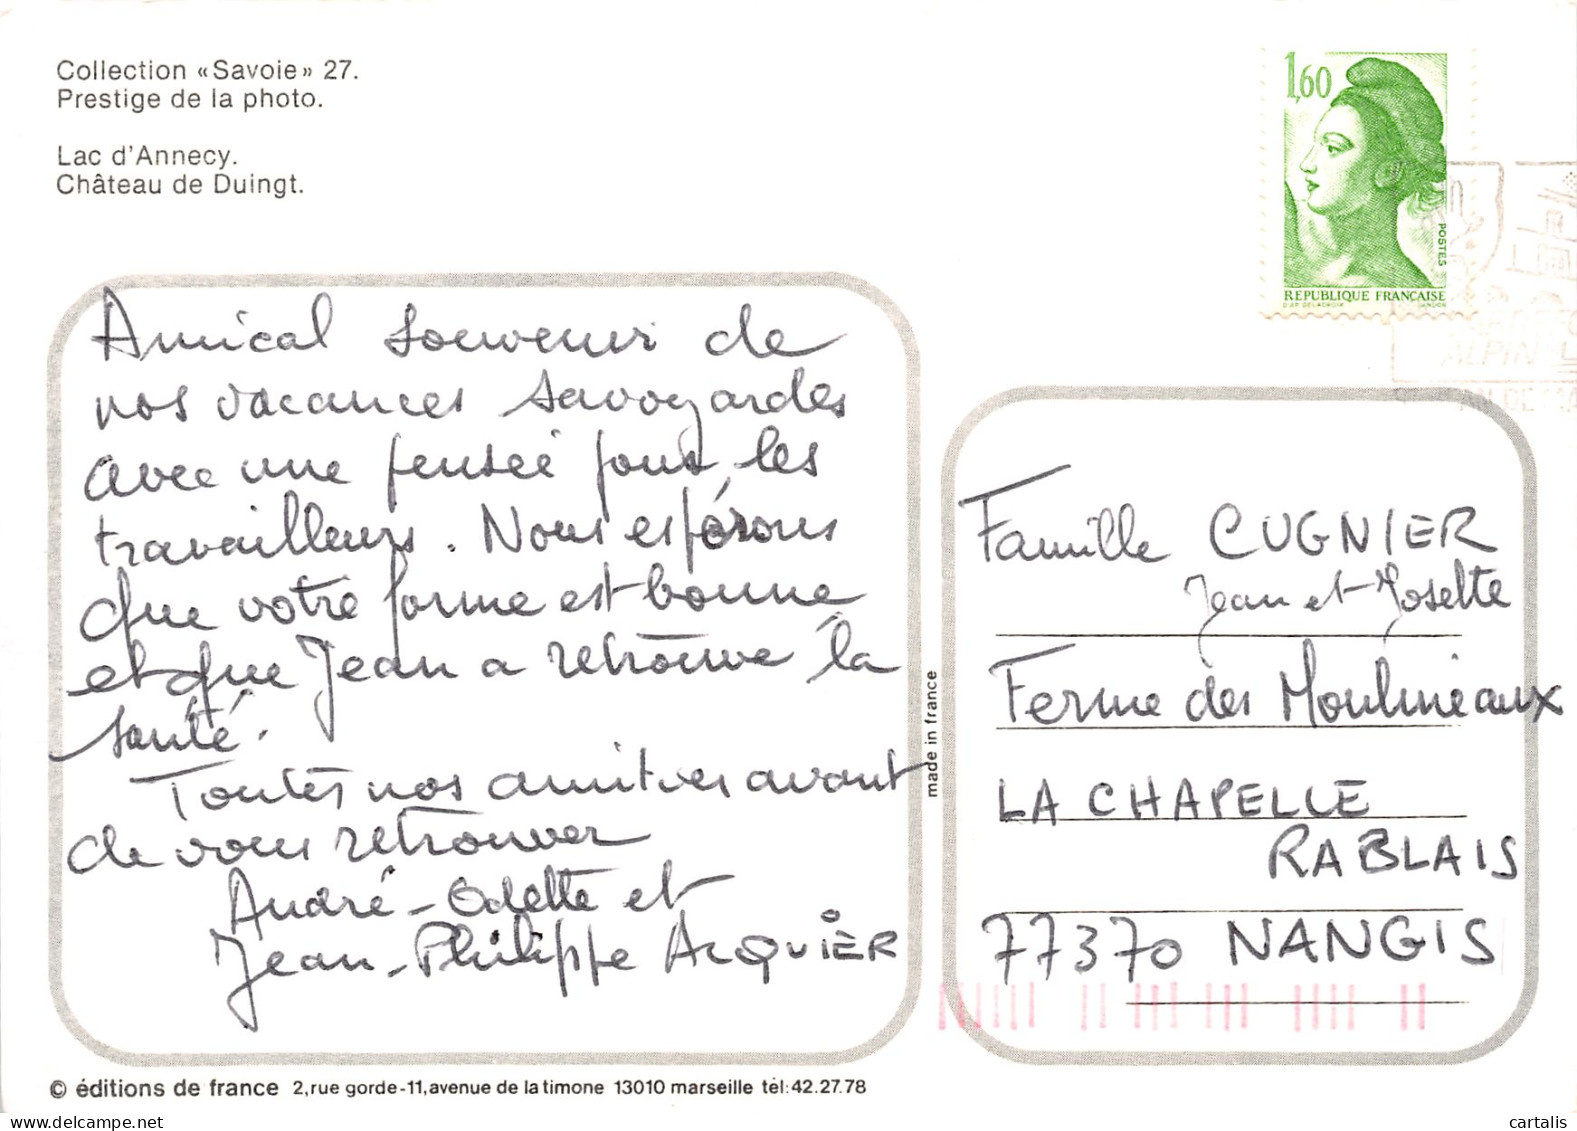 Collection «Savoie» 27.
Prestige de la photo.
Lac d'Annecy.
Château de Duingt.
1,60
POSTES
RÉPUBLIQUE FRANÇAISE
D'AP. DELACROIX GANDON
ALPIN
Amical souvenir de
nos vacances savoyardes
avec une pensée pour les
travailleurs. Nous espérons
que votre forme est bonne
et que Jean a retrouvé la
santé.
Toutes nos amitiés avant
de vous retrouver
André - Odette et
Jean-Philippe ALQUIER
made in france
Famille CUGNIER
Jean et Josette
Ferme des Moulineaux
LA CHAPELLE
RABLAIS
77370 NANGIS
© éditions de france 2,rue gorde-11,avenue de la timone 13010 marseille tél:42.27.78
cartalis